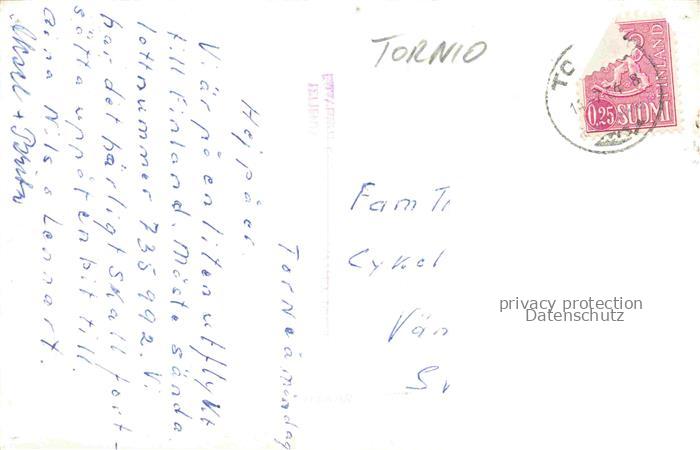 TORNIO
TO
0,25 SUOMI
FINLAND
Torneå måndag
Hej på er.
Vi är på en liten utflykt
till Finland. Måste sända
lottnummer 735992. Vi
har det härligt skall fort-
sätta uppåt en bit till.
Aina Nils o Lennart.
+ Britta
Fam
Cykel
privacy protection
Datenschutz